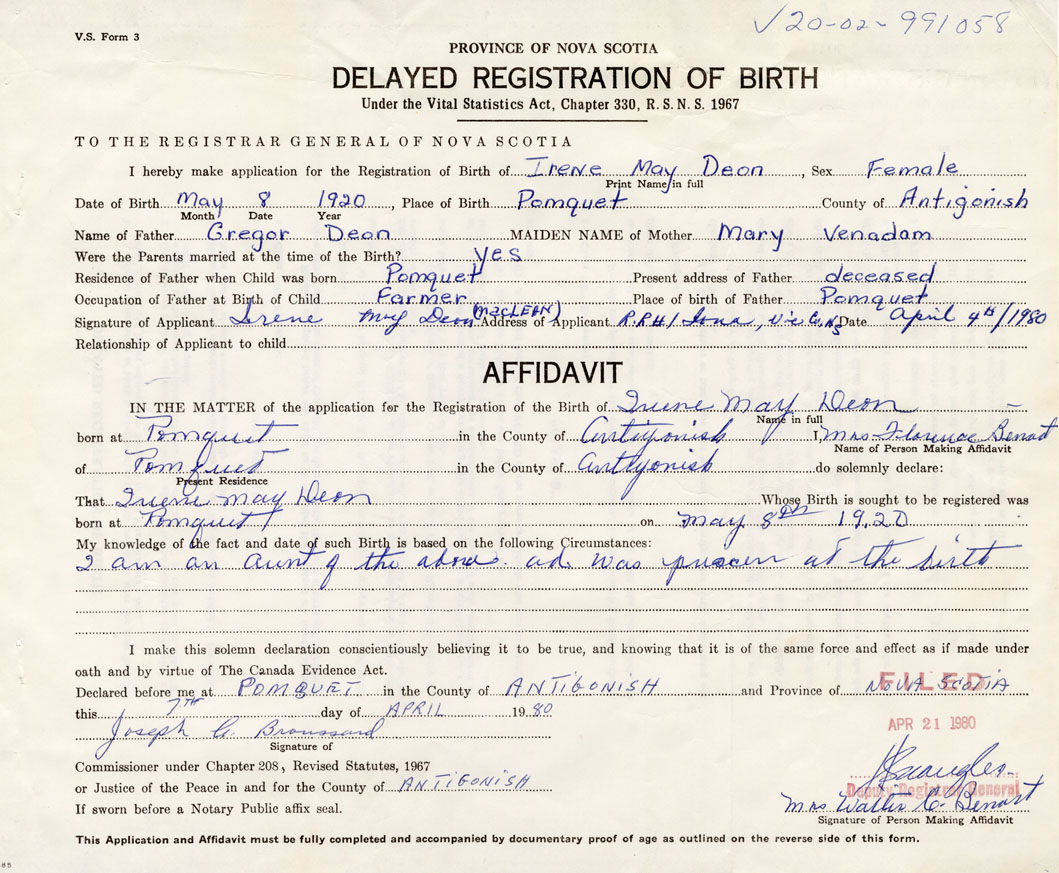 ✓20-02-991058
V.S. Form 3
PROVINCE OF NOVA SCOTIA
DELAYED REGISTRATION OF BIRTH
Under the Vital Statistics Act, Chapter 330, R.S.N.S. 1967
TO THE REGISTRAR GENERAL OF NOVA SCOTIA
I hereby make application for the Registration of Birth of Irene May Deon, Sex Female
Print Name in full
Date of Birth May 8 1920, Place of Birth Pomquet County of Antigonish
Month Date Year
Name of Father Gregor Deon MAIDEN NAME of Mother Mary Venadam
Were the Parents married at the time of the Birth? yes
Residence of Father when Child was born Pomquet Present address of Father deceased
Occupation of Father at Birth of Child Farmer Place of birth of Father Pomquet
Signature of Applicant Irene May Deon (MacLEAN) Address of Applicant R.R#1 Iona, Vic Co, NS Date April 4th/1980
Relationship of Applicant to child
AFFIDAVIT
IN THE MATTER of the application for the Registration of the Birth of Irene May Deon
Name in full
born at Pomquet in the County of Antigonish I, Mrs Florence Benoit
Name of Person Making Affidavit
of Pomquet in the County of Antigonish do solemnly declare:
Present Residence
That Irene May Deon Whose Birth is sought to be registered was
born at Pomquet on May 8th 1920
My knowledge of the fact and date of such Birth is based on the following Circumstances:
I am an Aunt of the above. and was at the birth
I make this solemn declaration conscientiously believing it to be true, and knowing that it is of the same force and effect as if made under
oath and by virtue of The Canada Evidence Act.
Declared before me at POMQUET in the County of ANTIGONISH and Province of NOVA SCOTIA
FILED
this 7TH day of APRIL 1980
APR 21 1980
Joseph G. Broussard
Signature of
Commissioner under Chapter 208, Revised Statutes, 1967
or Justice of the Peace in and for the County of ANTIGONISH
Deputy Registrar General
If sworn before a Notary Public affix seal.
Mrs Walter C. Benoit
Signature of Person Making Affidavit
This Application and Affidavit must be fully completed and accompanied by documentary proof of age as outlined on the reverse side of this form.